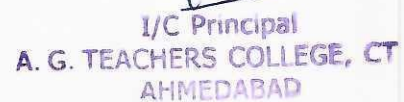 I/C Principal
A. G. TEACHERS COLLEGE, CT
AHMEDABAD